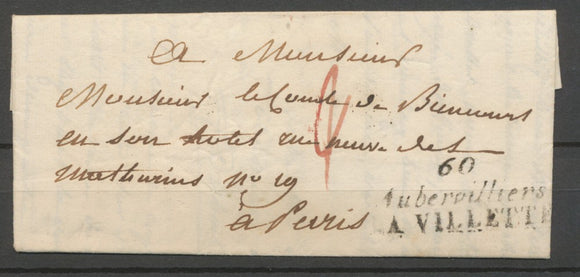 A Monsieur
Monsieur le Comte de Biencourt
en son hotel rue neuve des
mathurins n° 19
à Paris
60
Aubervilliers
LA VILLETTE